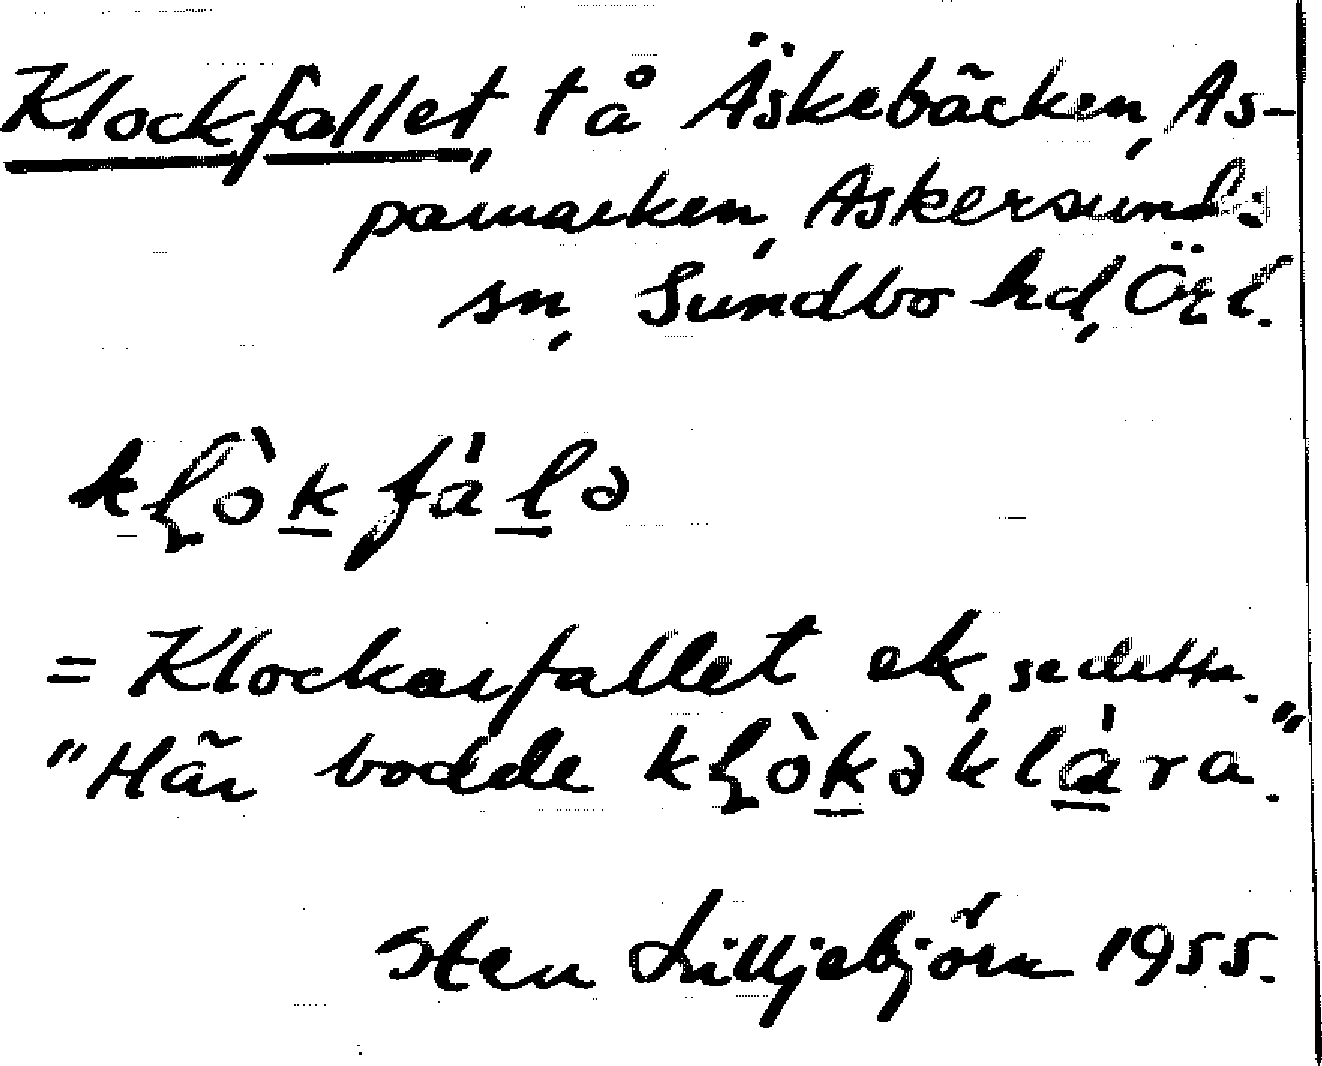 Klockfallet, tå Äskebäcken, As-
pamarken, Askersunds
sn, Sundbo hd, Örl.
kļòkfálə
= Klockarfallet ek, se detta.
"Här bodde kļòkəklára."
Sten Lilljebjörn 1955.